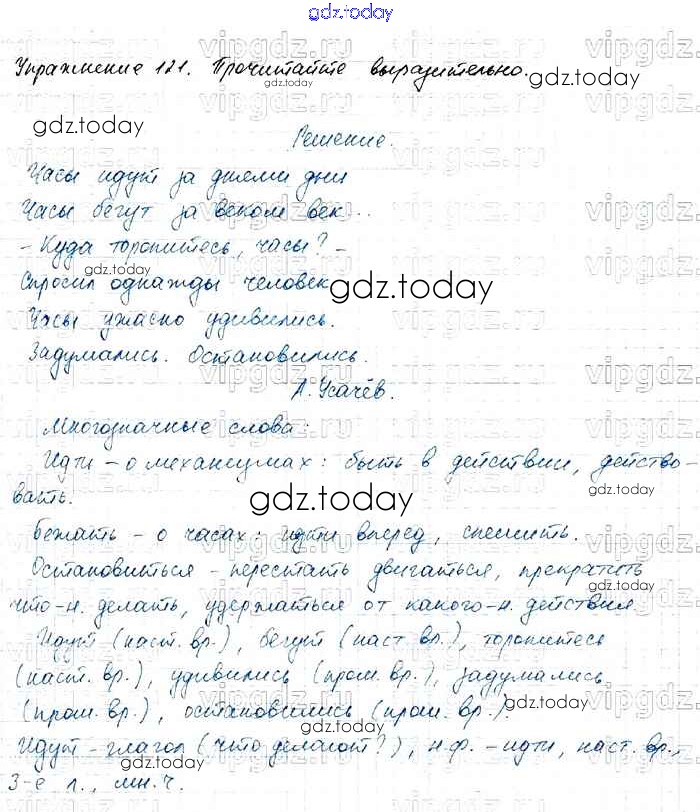 gdz.today
Упражнение 121. Прочитайте выразительно.
gdz.today
Решение.
Часы идут за днями дни
Часы бегут за веком век...
- Куда торопитесь, часы? -
gdz.today
Спросил однажды человек
gdz.today
Часы ужасно удивились.
Задумались. Остановились.
А. Усачёв.
Многозначные слова:
Идти - о механизмах: быть в действии, действо-
вать.
gdz.today
Бежать - о часах: идти вперед, спешить.
Остановиться - перестать двигаться, прекратить
gdz.today
что-н. делать, удержаться от какого-н. действия
Идут (наст. вр.), бегут (наст. вр.), торопитесь
(наст. вр.), удивились (прош. вр.), задумались
gdz.today
(прош. вр.), остановились (прош. вр.).
Идут - глагол (что делают?), н.ф. - идти, наст. вр.,
3-е л., мн. ч.
vipgdz.ru